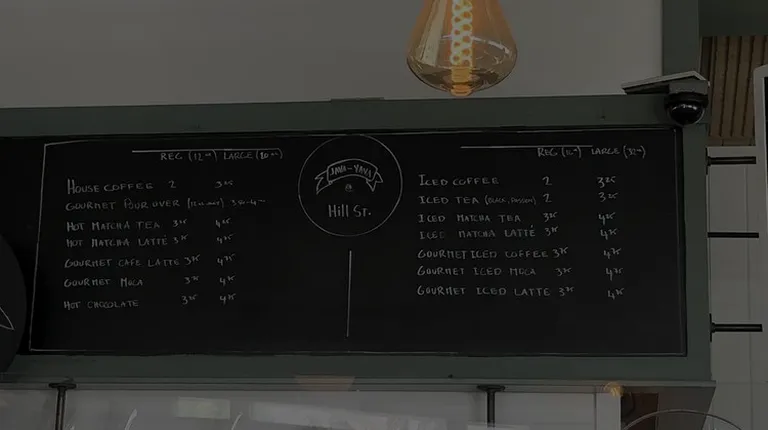 REG (12oz) LARGE (20oz)
HOUSE COFFEE 2 3.25
GOURMET POUR OVER
HOT MATCHA TEA 3.25 4.25
HOT MATCHA LATTE 3.75 4.75
GOURMET CAFE LATTE 3.75 4.75
GOURMET MOCA 3.75 4.75
HOT CHOCOLATE 3.25 4.25
JAVA-YAVA
Hill St.
REG (16oz) LARGE (32oz)
ICED COFFEE 2 3.25
ICED TEA (BLACK, PASSION) 2 3.25
ICED MATCHA TEA 4.25
ICED MATCHA LATTÉ 4.75
GOURMET ICED COFFEE 3.75 4.75
GOURMET ICED MOCA 3.75 4.75
GOURMET ICED LATTE 3.75 4.75